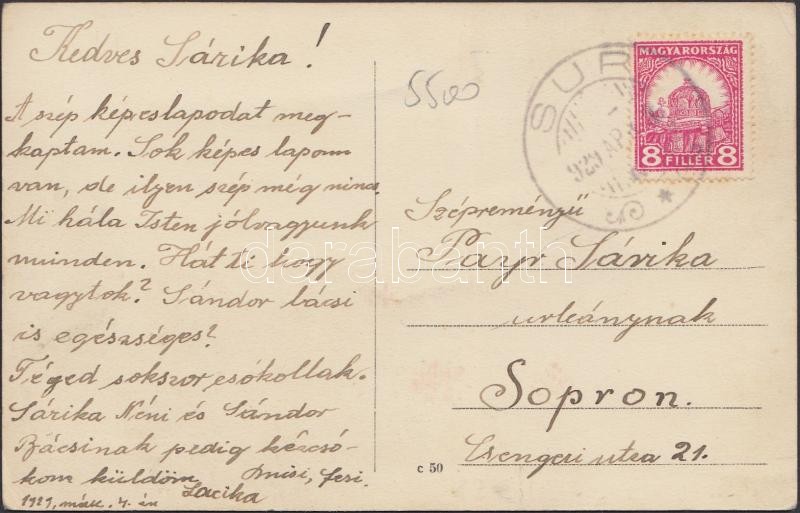 Kedves Sárika!
A szép képeslapodat meg-
kaptam. Sok képes lapom
van, de ilyen szép még nincs.
Mi hála Isten jólvagyunk
minden. Hát ti hogy
vagytok? Sándor bácsi
is egészséges?
Téged sokszor csókollak.
Sárika Néni és Sándor
Bácsinak pedig kézcsó-
kom küldöm
Lacika
1929,
5500
SUR
929
MAGYARORSZÁG
8 FILLÉR 8
Szépreményü
Payr Sárika
urleánynak
Sopron.
Csengeri utca 21.
c 50
darabanth